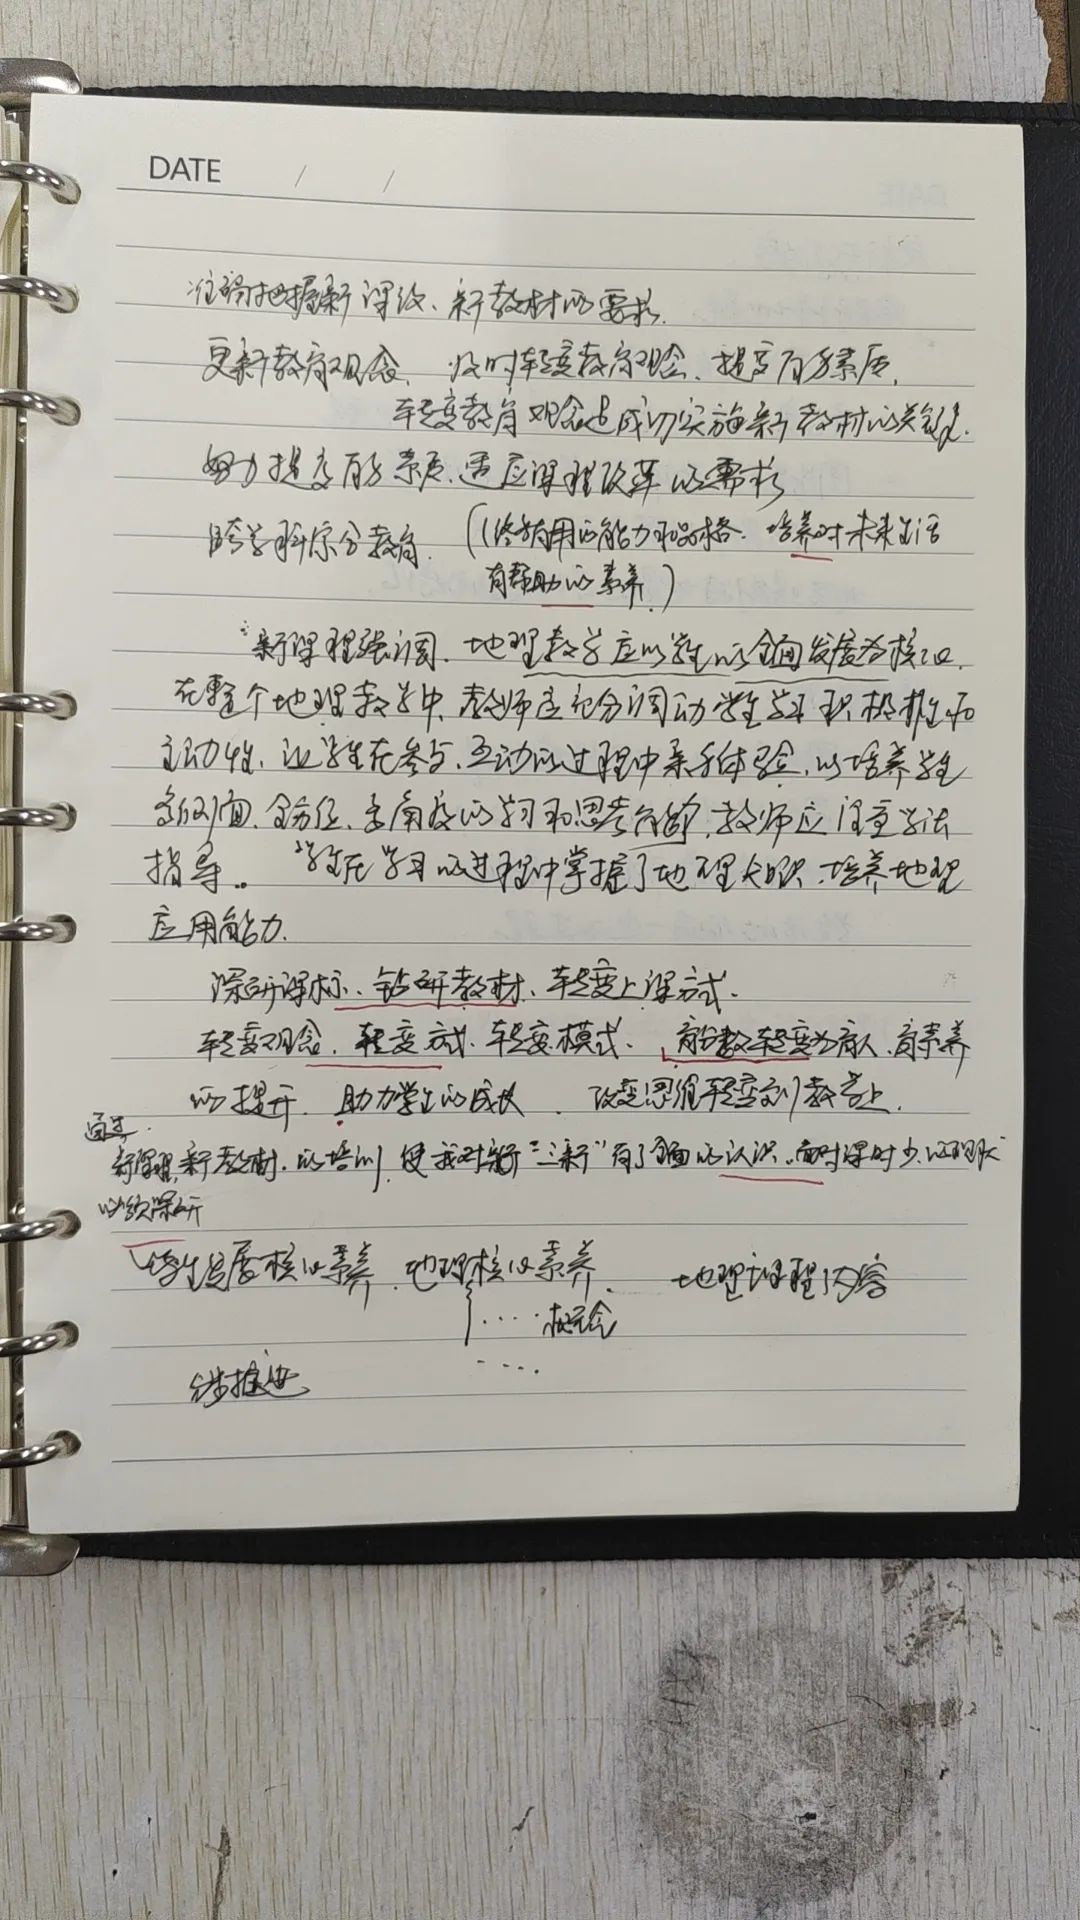 DATE / /
准确把握新课改、新教材的要求.
更新教育观念, 及时转变教育观念、提高自身素质,
转变教育观念是成功实施新教材的关键.
努力提高自身素质、适应课程改革的需求
跨学科综合教育. (终身有用的能力和品格. 培养对未来生活
有帮助的素养.)
新课程强调、地理教学应以学生的全面发展为核心.
在整个地理教学中, 教师应充分调动学生学习积极性和
主动性, 让学生在参与、互动的过程中亲身体验, 以培养学生
多侧面、全方位、多角度的学习和思考, 教师应注重学法
指导。 学生在学习的过程中掌握了地理知识、培养地理
应用能力.
深研课标、钻研教材、转变上课方式.
转变观念、转变方式、转变模式、 育分数转变为育人、育素养
的提升、助力学生的成长 、 改变思维转变到教学上.
通过
新课程, 新教材, 的培训, 使我对"三新"有了全面的认识。面对课时少、
必须深研
学生发展核心素养、地理核心素养、 地理课程内容
.... 概念
....
分步推进